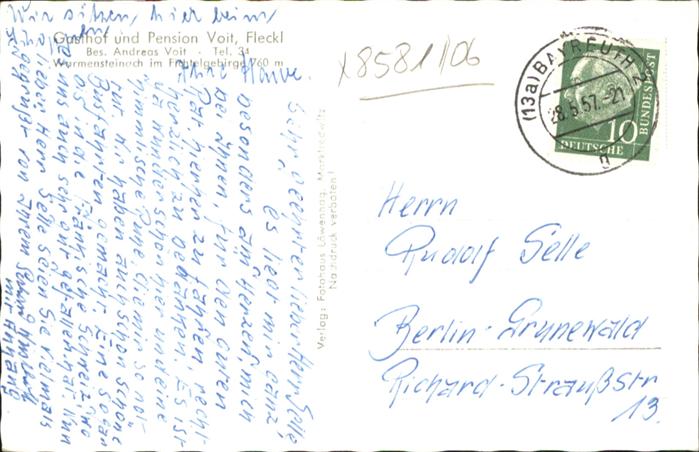 Wir sitzen hier beim
Gasthof und Pension Voit, Fleckl
Bes. Andreas Voit - Tel. 34
Warmensteinach im Fichtelgebirge 760 m
x8581/06
(13a) BAYREUTH 2
28.5.57.-21
g
10
DEUTSCHE
BUNDESPOST
Herrn
Rudolf Selle
Berlin-Grunewald
Richard-Straußstr
13.
Verlag: Fotohaus Löwenhag, Marktredwitz
Nachdruck verboten!
Sehr verehrter lieber Herr Selle,
es liegt mir ganz
besonders am Herzen mich
bei Ihnen, für den guten
Rat, hierher zu fahren, recht
herzlich zu bedanken. Es ist
da wunderschön hier und eine
himmlische Ruhe die mir so not
tut. Wir haben auch schon schöne
Busfahrten gemacht. Eine sogar
bis in die Fränkische Schweiz, wo
es uns auch sehr gut gefallen hat. Nun
lieber Herr Selle seien Sie vielmals
gegrüßt von Ihrem
mit Anhang